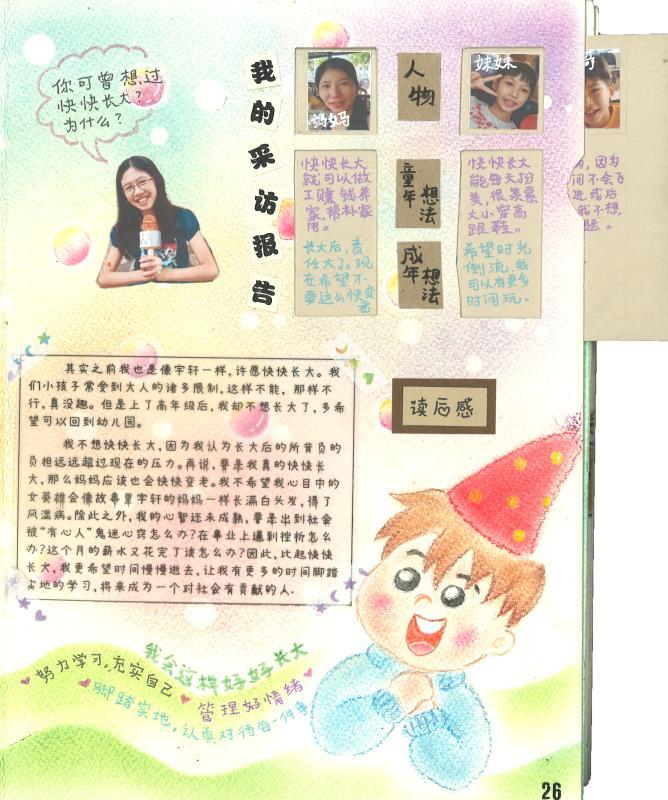 你可曾想过
快快长大?
为什么?
我的采访报告
妈妈
人物
妹妹
快快长大
就可以做
工赚钱养
家,帮补家
用。
长大后,责
任大了。现
在希望不
要这么快变
老
童年想法
成年想法
快快长大
能每天扮
美,很羡慕
大小穿高
跟鞋。
希望时光
倒流,我
可以有更多
时间玩。
因为
间不会飞
进或后
我不想,
其实之前我也是像宇轩一样,许愿快快长大。我
们小孩子常受到大人的诸多限制,这样不能,那样不
行,真没趣。但是上了高年级后,我却不想长大了,多希
望可以回到幼儿园。
我不想快快长大,因为我认为长大后的所背负的
负担远远超过现在的压力。再说,要是我真的快快长
大,那么妈妈应该也会快快变老。我不希望我心目中的
女英雄会像故事里宇轩的妈妈一样长满白头发,得了
风湿病。除此之外,我的心智还未成熟,要是出到社会
被“有心人”鬼迷心窍怎么办?在事业上遇到挫折怎么
办?这个月的薪水又花完了该怎么办?因此,比起快快
长大,我更希望时间慢慢逝去,让我有更多的时间脚踏
实地的学习,将来成为一个对社会有贡献的人.
读后感
我会这样好好长大
努力学习,充实自己
管理好情绪
脚踏实地,认真对待每一件事
26